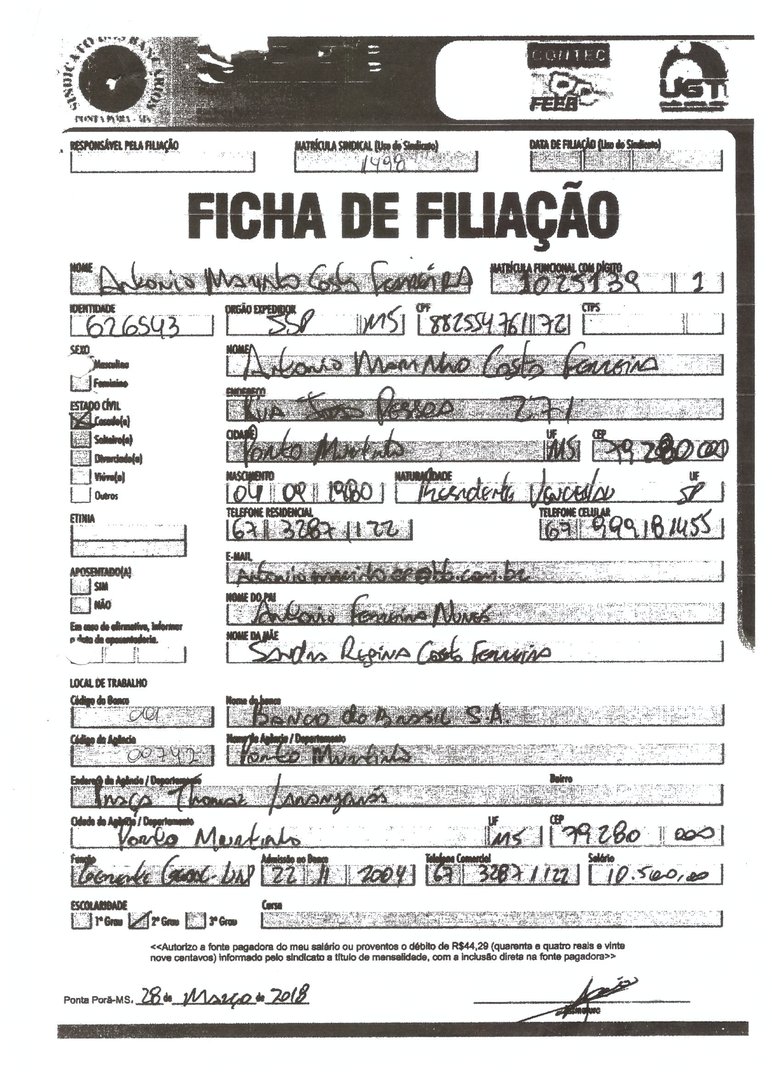 SINDICATO DOS BANCÁRIOS
PONTA PORÃ - MS
CONTEC
FEEB
UGT
RESPONSÁVEL PELA FILIAÇÃO
MATRÍCULA SINDICAL (Uso do Sindicato)
DATA DE FILIAÇÃO (Uso do Sindicato)
1498
FICHA DE FILIAÇÃO
NOME
MATRÍCULA FUNCIONAL COM DÍGITO
Antonio Marinho Costa Ferreira
1025139 1
IDENTIDADE
ORGÃO EXPEDIDOR
CPF
CTPS
626543
SSP MS
882554761 72
SEXO
Masculino
Feminino
NOME
Antonio Marinho Costa Ferreira
ENDEREÇO
Rua João Pessoa 271
ESTADO CÍVIL
Casado(a)
Solteiro(a)
Divorciado(a)
Viúvo(a)
Outros
CIDADE
UF
CEP
Porto Murtinho
MS
79280 000
NASCIMENTO
NATURALIDADE
UF
04 09 1980
Presidente Venceslau
SP
TELEFONE RESIDENCIAL
TELEFONE CELULAR
67 3287 1122
67 999181455
ETINIA
E-MAIL
APOSENTADO(A)
SIM
NÃO
Em caso de afirmativo, informar
a data da aposentadoria.
NOME DO PAI
Antonio Ferreira Nunes
NOME DA MÃE
Sandra Regina Costa Ferreira
LOCAL DE TRABALHO
Código do Banco
Nome do banco
001
Banco do Brasil S.A.
Código da Agência
Nome da Agência / Departamento
00742
Porto Murtinho
Endereço da Agência / Departamento
Bairro
Praça Thomaz Laranjeira
Cidade da Agência / Departamento
UF
CEP
Porto Murtinho
MS
79280 000
Função
Admissão no Banco
Telefone Comercial
Salário
Gerente Geral - UN
22 11 2004
67 3287 1122
10.560,00
ESCOLARIDADE
Curso
1º Grau
2º Grau
3º Grau
<<Autorizo a fonte pagadora do meu salário ou proventos o débito de R$44,29 (quarenta e quatro reais e vinte
nove centavos) informado pelo sindicato a título de mensalidade, com a inclusão direta na fonte pagadora>>
Ponta Porã-MS, 28 de Março de 2018
Assinatura